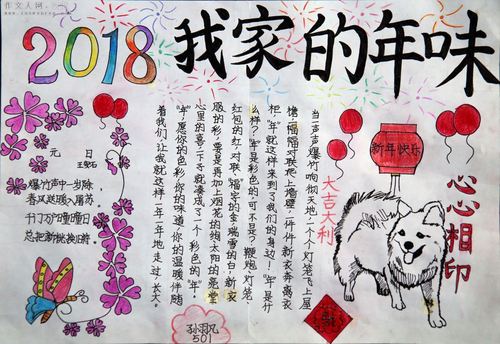 作文人网
2018 我家的年味
元 日
王安石
爆竹声中一岁除
春风送暖入屠苏
千门万户曈曈日
总把新桃换旧符。
当一声声爆竹响彻天地,一个个灯笼飞上屋
檐,一幅幅对联爬上墙壁,一件件新衣奔离衣
柜,"年"就这样来到了我们的身边!"年"是什
么样?"年"是彩色的可不是?鞭炮、灯笼、
红包的红,对联、"福"字的金,瑞雪的白,新衣
服的彩,要是再加上烟花的绚,太阳的亮,
心里的喜,一下子就凑成了一个"彩色的年"。
"年",愿你的色彩、你的味道、你的温暖伴随
着我们,让我就这样一年一年地走过、长大。
新年快乐
大吉大利
心心相印
福
501